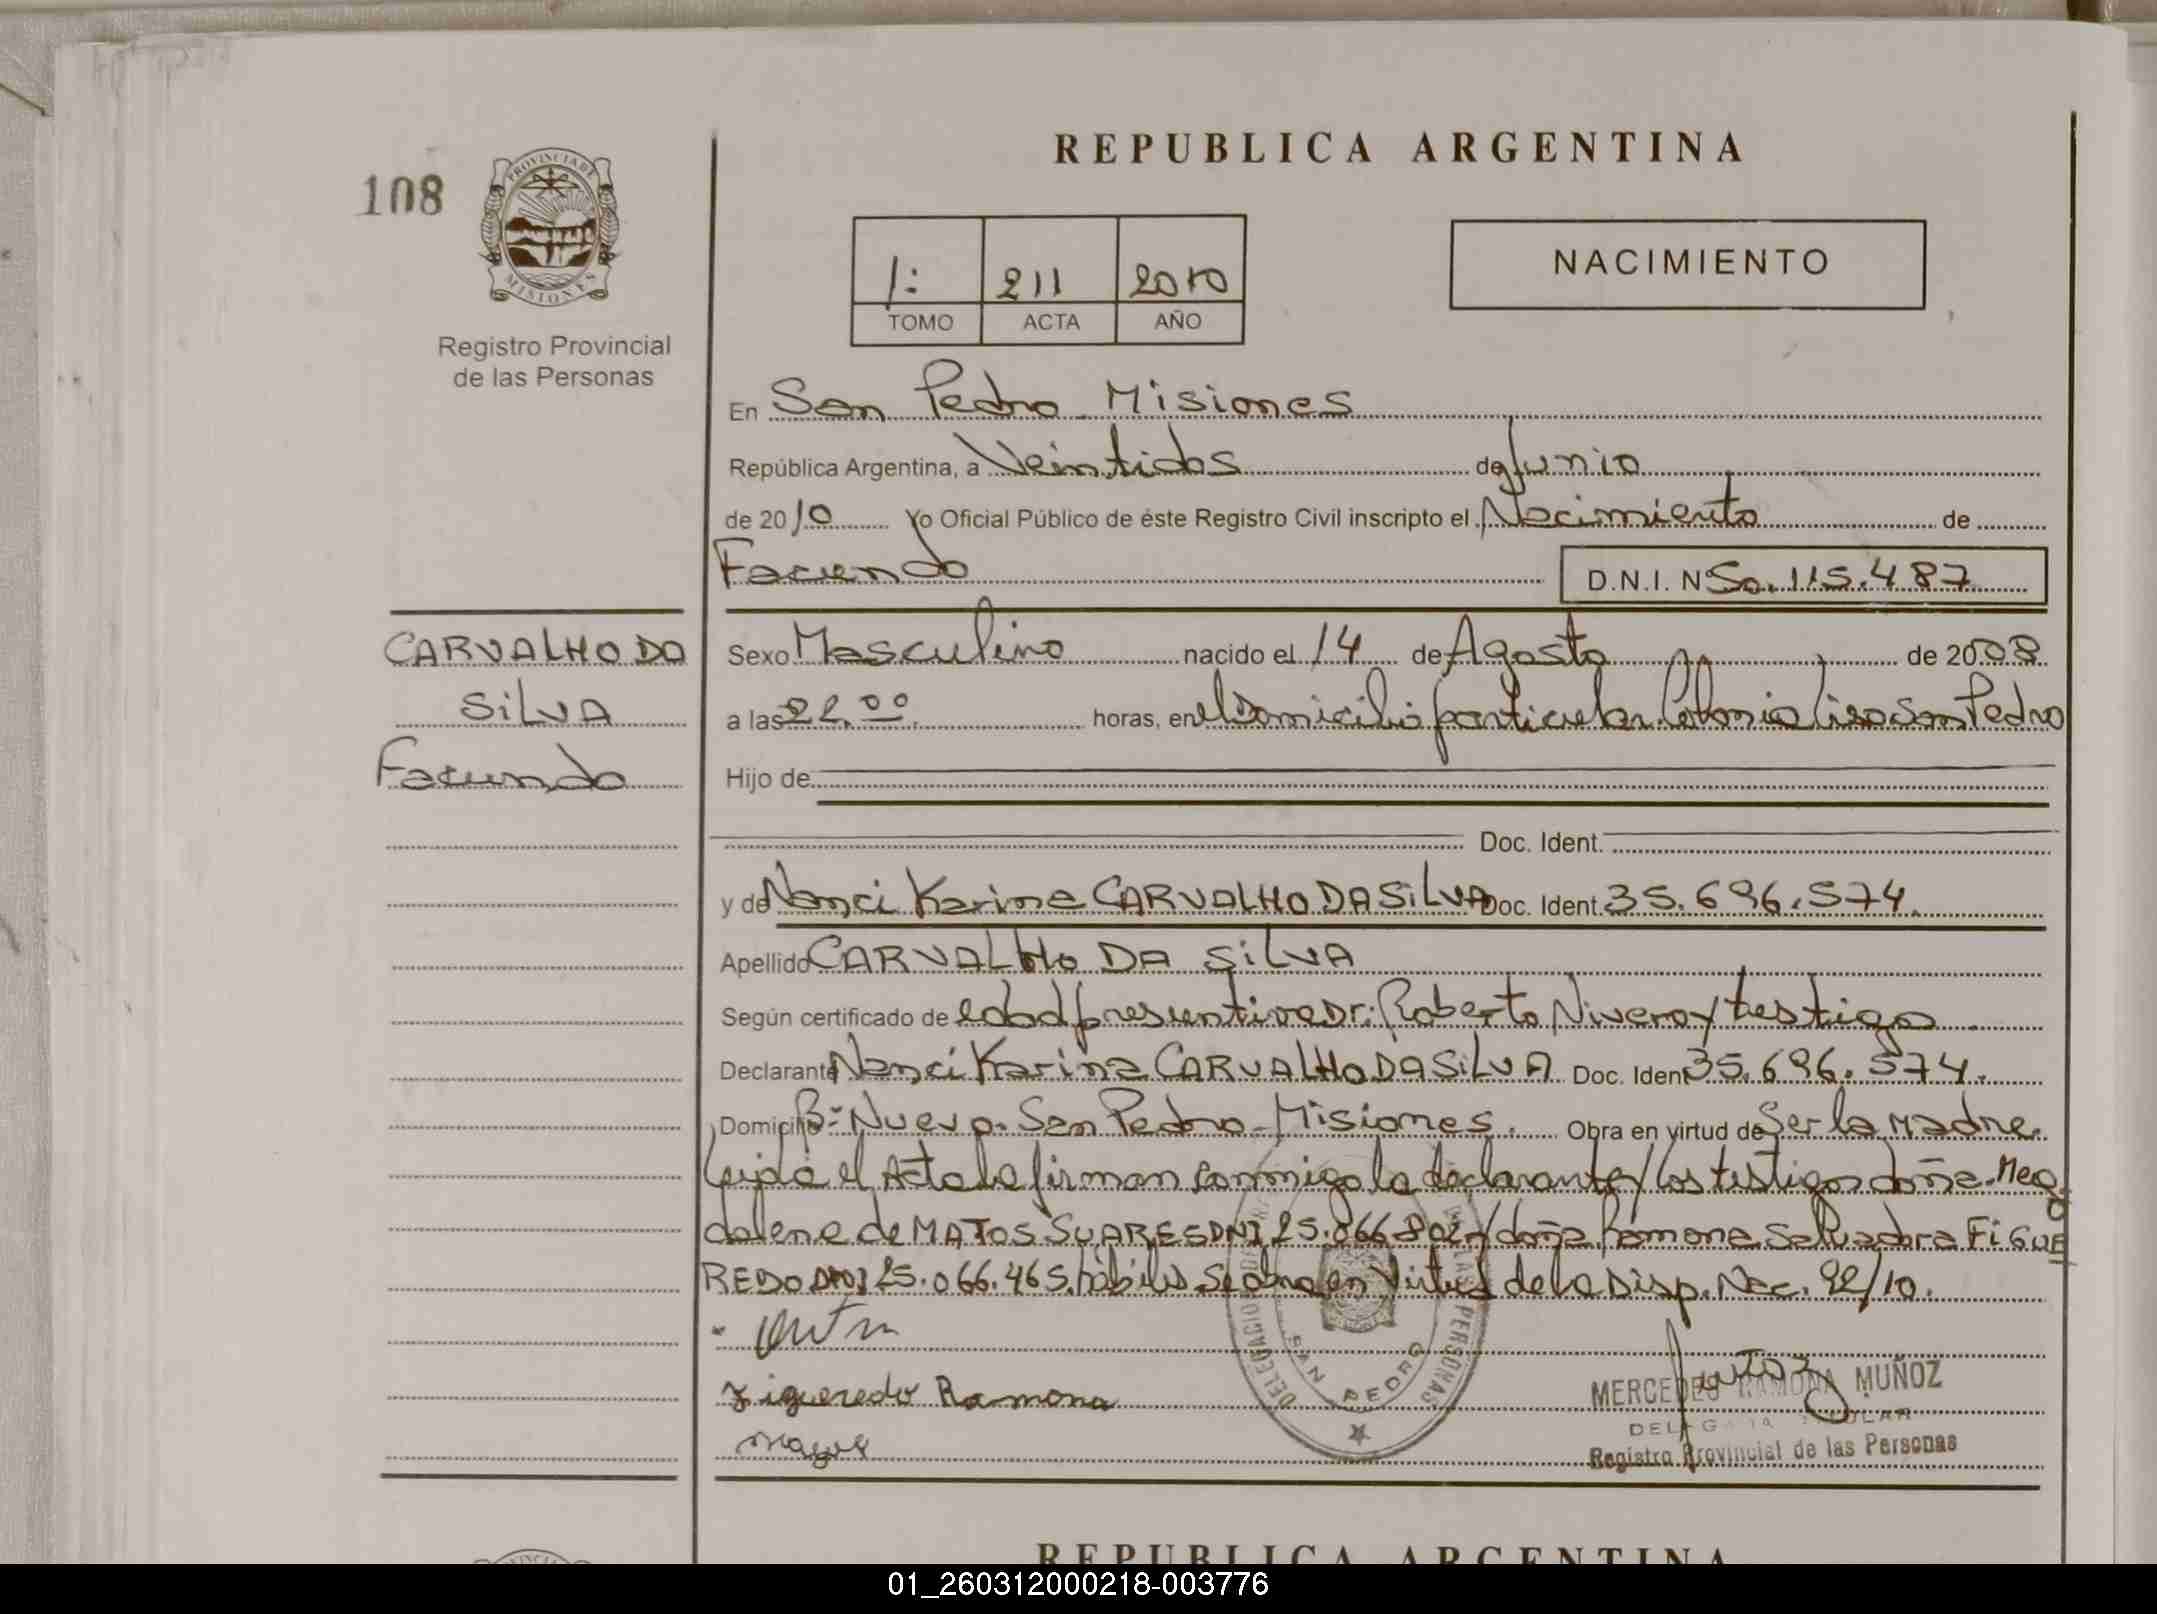 REPUBLICA ARGENTINA
108
PROVINCIA DE
MISIONES
Registro Provincial
de las Personas
1: 211 2010
TOMO ACTA AÑO
NACIMIENTO
En San Pedro Misiones
República Argentina, a Veintidos de Junio
de 2010 Yo Oficial Público de éste Registro Civil inscripto el Nacimiento de
Facundo D.N.I. Nº 50.115.487
CARVALHO DA
SILVA
Facundo
Sexo Masculino nacido el 14 de Agosto de 2008
a las 22,00 horas, en el Domicilio particular Colonia San Pedro
Hijo de
Doc. Ident.
y de Nanci Karina CARVALHO DA SILVA Doc. Ident. 35.696.574.
Apellido CARVALHO DA SILVA
Según certificado de edad presuntiva Dr: Roberto Nivero y testigo
Declarante Nanci Karina CARVALHO DA SILVA Doc. Ident 35.696.574.
Domicilio Bº Nuevo. San Pedro - Misiones. Obra en virtud de Ser la Madre.
Leida el Acta la firman conmigo la declarante y los testigos doña Mag
dalena de MATOS SUARES DNI 25.066.802 y doña Ramona Salvadora FIGUE
REDO DNI 25.066.465. hábiles. Se obra en Virtud de la Disp. Nac. 92/10.
Figueredo Ramona
DELEGACIO PERSONAS
SAN PEDRO
MERCEDES RAMONA MUÑOZ
DELEGADA TITULAR
Registro Provincial de las Personas
REPUBLICA ARGENTINA
01_260312000218-003776